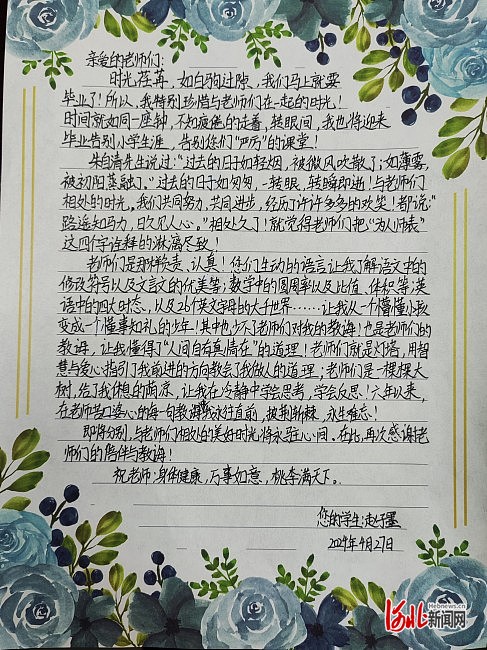 亲爱的老师们：
时光荏苒，如白驹过隙，我们马上就要
毕业了！所以，我特别珍惜与老师们在一起的时光！
时间就如同一座钟，不知疲倦的走着，转眼间，我也将迎来
毕业告别小学生涯，告别您们“严厉”的课堂！
朱自清先生说过：“过去的日子如轻烟，被微风吹散了；如薄雾，
被初阳蒸融了。”过去的日子如匆匆，一转眼，转瞬即逝！与老师们
相处的时光。我们共同努力，共同进步，经历了许许多多的欢笑！都说：“
路遥知马力，日久见人心。”相处久了！就觉得老师们把“为人师表”
这四个字诠释的淋漓尽致！
老师们是那样负责、认真！您们生动的语言让我了解语文中的
修改符号以及文言文的优美等；数学中的圆周率以及比值、体积等；英
语中的四大时态，以及26个英文字母的大千世界……让我从一个懵懂小孩
变成一个懂事知礼的少年！其中也少不了老师们对我的教诲！也是老师们的
教诲，让我懂得了“人间自有真情在”的道理！老师们就是灯塔，用智
慧与爱心指引了我前进的方向教会了我做人的道理；老师们是一棵棵大
树，给了我休憩的荫凉，让我在冷静中学会思考，学会反思！六年以来，
在老师苦口婆心的每一句教诲我永往直前，披荆斩棘，永生难忘！
即将分别，与老师们相处的美好时光将永驻心间。在此，再次感谢老
师们的陪伴与教诲！
祝老师：身体健康，万事如意，桃李满天下。
您的学生：赵
2024年4月27日
河北新闻网
Hebnews.cn